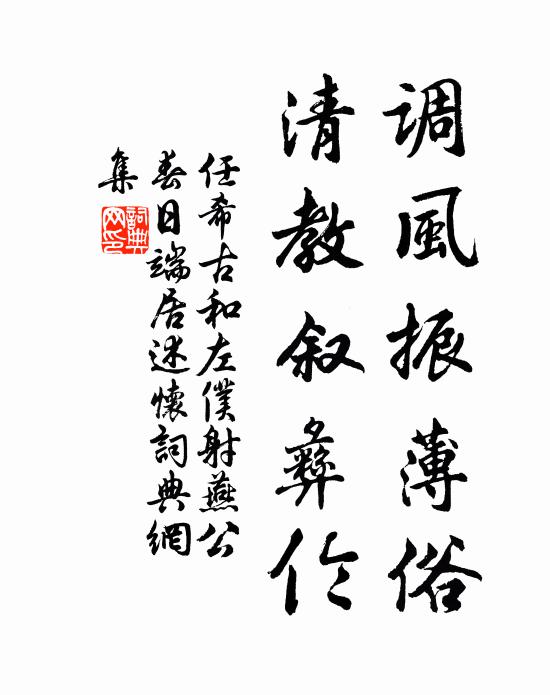 調風振薄俗
清教叙彝倫
任希古和左僕射燕公
春日端居述懷詞典網
集
詞典
网印